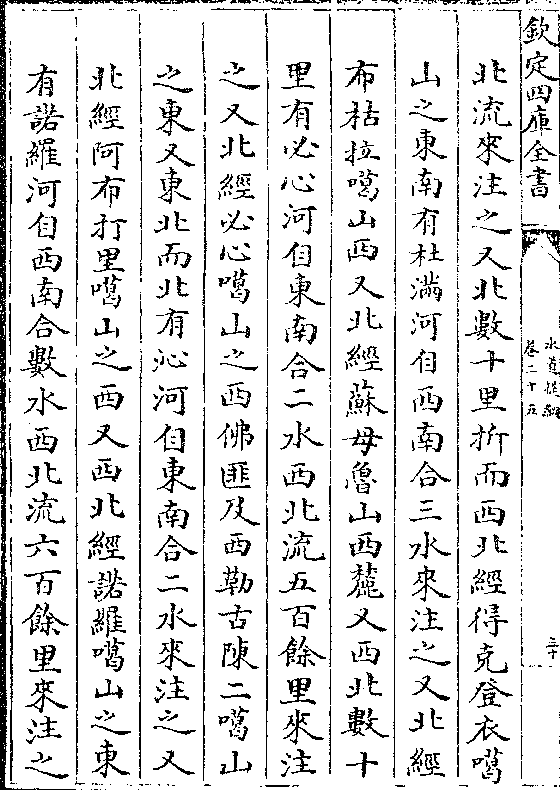 欽定四庫全書
水道提綱
卷二十五
三十
北流來注之又北數十里折而西北經得克登衣噶
山之東南有杜滿河自西南合三水來注之又北經
布枯拉噶山西又北經蘇母魯山西麓又西北數十
里有必心河自東南合二水西北流五百餘里來注
之又北經必心噶山之西佛匪及西勒古陳二噶山
之東又東北而北有沁河自東南合二水來注之又
北經阿布打里噶山之西又西北經諾羅噶山之東
有諾羅河自西南合數水西北流六百餘里來注之